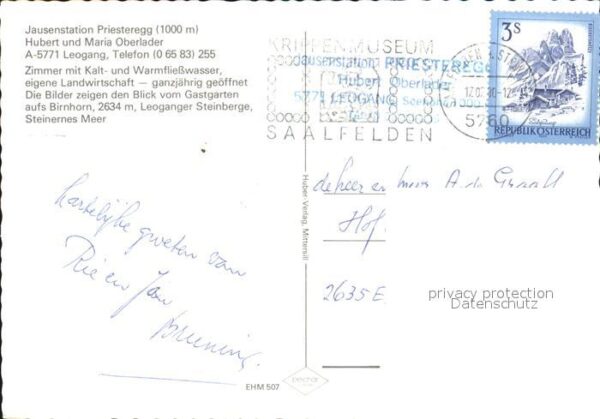 Jausenstation Priesteregg (1000 m)
Hubert und Maria Oberlader
A-5771 Leogang, Telefon (0 65 83) 255
Zimmer mit Kalt- und Warmfließwasser,
eigene Landwirtschaft — ganzjährig geöffnet
Die Bilder zeigen den Blick vom Gastgarten
aufs Birnhorn, 2634 m, Leoganger Steinberge,
Steinernes Meer
KRIPPENMUSEUM
SAALFELDEN
Jausenstation PRIESTEREGG
Hubert Oberlader
5771 LEOGANG
5760
3 S
REPUBLIK ÖSTERREICH
hartelijke groeten van
Rie en Jan
Bruening.
Huber-Verlag, Mittersill
de heer en mevr A. de Graaff
Hof.
2635 E
privacy protection
Datenschutz
EHM 507